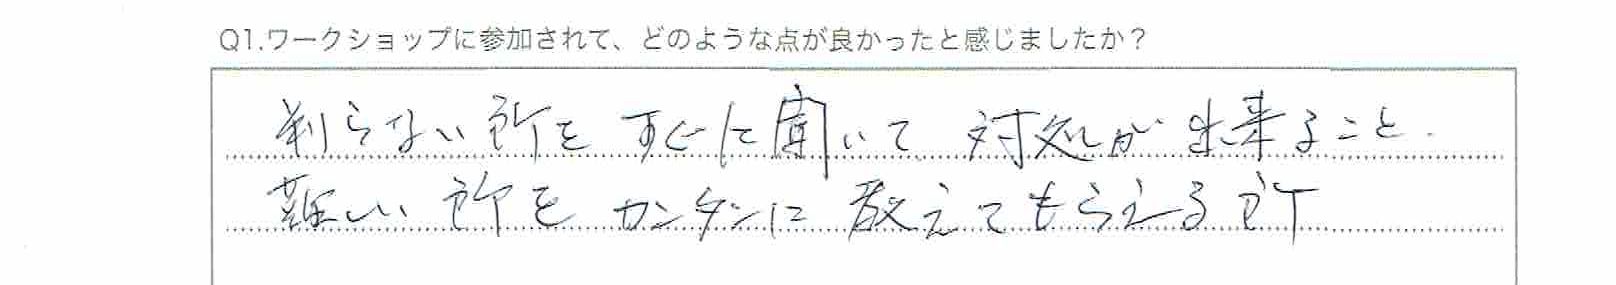 Q1.ワークショップに参加されて、どのような点が良かったと感じましたか？
判らない所を すぐに聞いて 対処が出来ること.
難しい所を カンタンに 教えてもらえる所